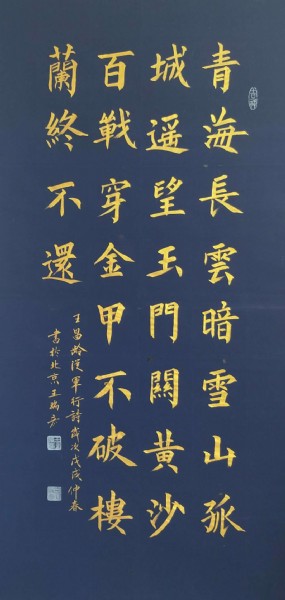 青海長雲暗雪山孤
城遥望玉門關黄沙
百戰穿金甲不破樓
蘭終不還
王昌齡從軍行詩歲次戊戌仲春
書於北京王瑞